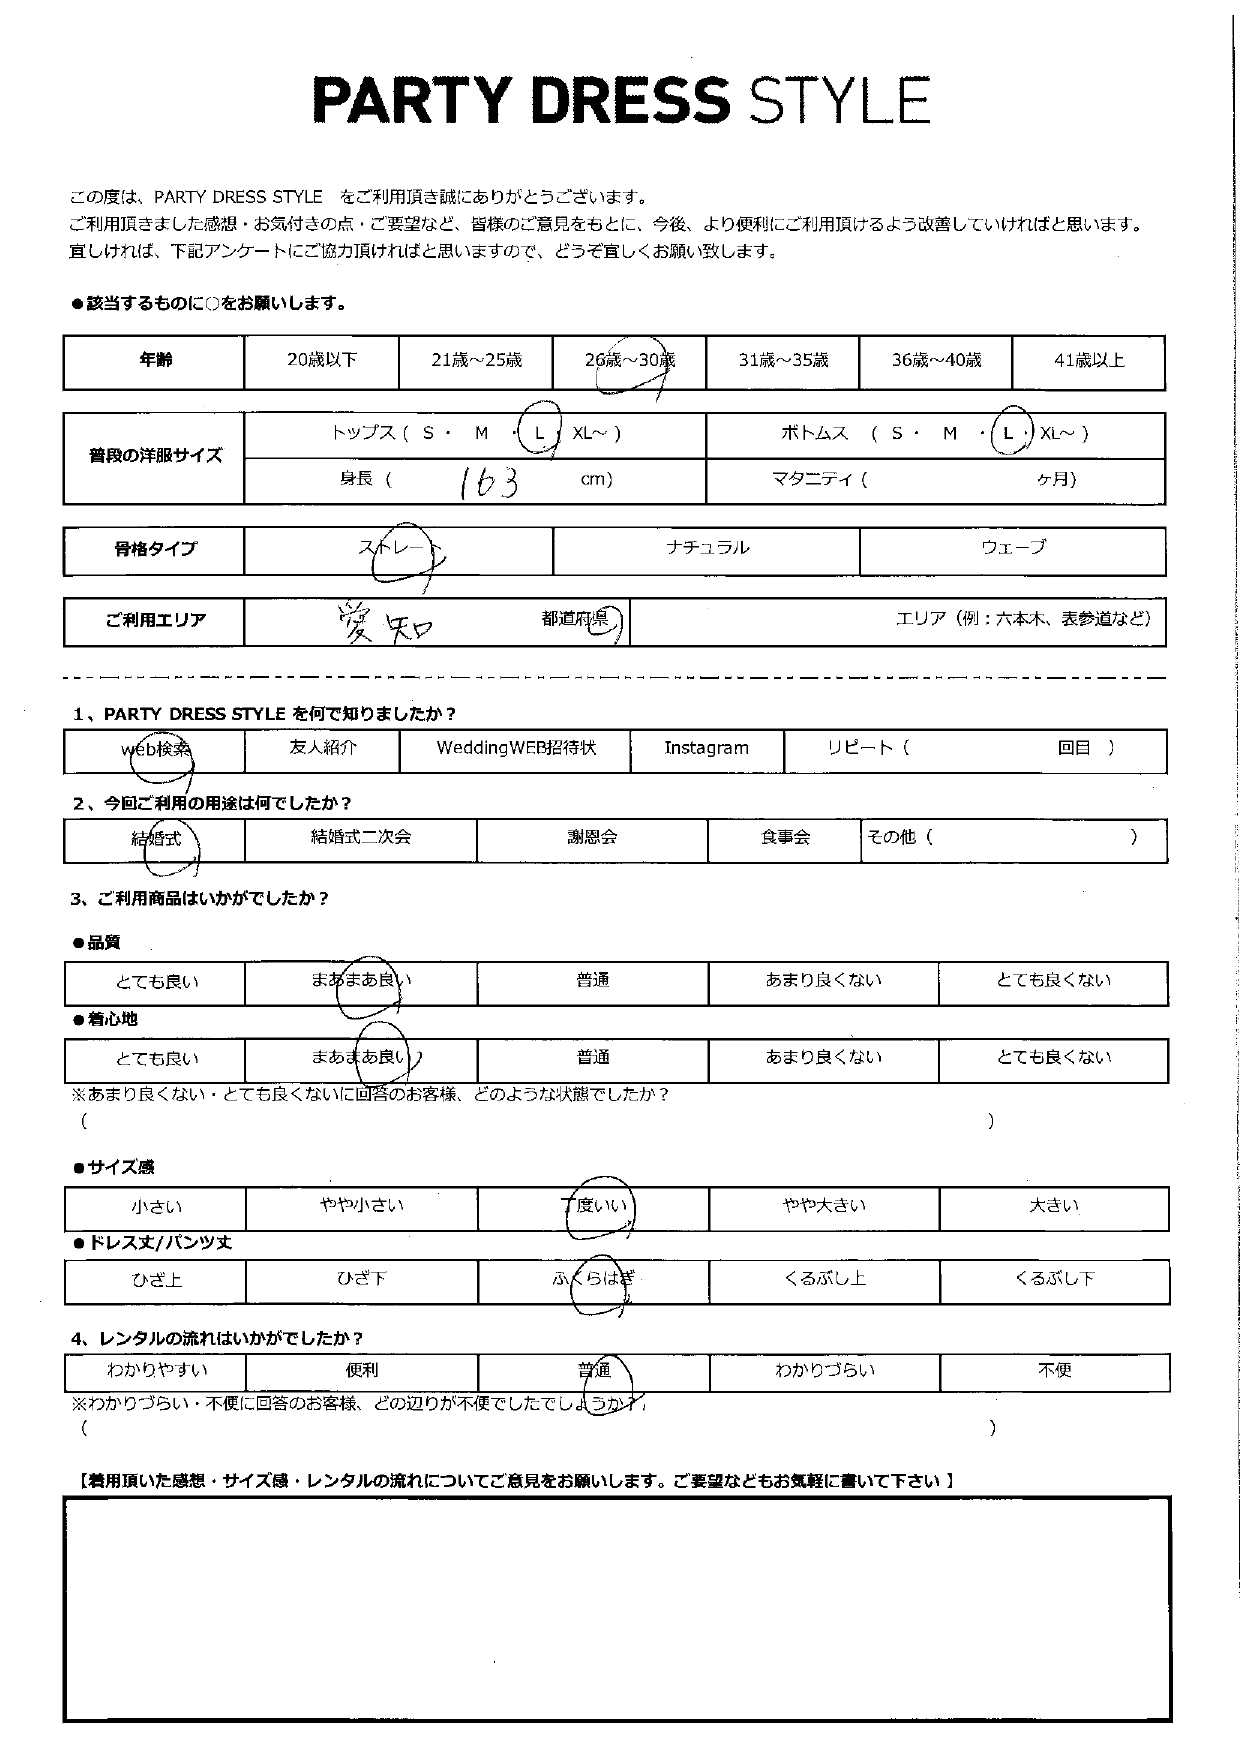 PARTY DRESS STYLE
この度は、PARTY DRESS STYLE をご利用頂き誠にありがとうございます。
ご利用頂きました感想・お気付きの点・ご要望など、皆様のご意見をもとに、今後、より便利にご利用頂けるよう改善していければと思います。
宜しければ、下記アンケートにご協力頂ければと思いますので、どうぞ宜しくお願い致します。
●該当するものに○をお願いします。
年齢 20歳以下 21歳～25歳 26歳～30歳 31歳～35歳 36歳～40歳 41歳以上
普段の洋服サイズ
トップス ( S ・ M ・ L ・ XL～ ) ボトムス ( S ・ M ・ L ・ XL～ )
身長 ( 163 cm) マタニティ ( ヶ月)
骨格タイプ ストレート ナチュラル ウェーブ
ご利用エリア 愛知 都道府県 エリア（例：六本木、表参道など）
1、PARTY DRESS STYLE を何で知りましたか？
web検索 友人紹介 WeddingWEB招待状 Instagram リピート ( 回目 )
2、今回ご利用の用途は何でしたか？
結婚式 結婚式二次会 謝恩会 食事会 その他 ( )
3、ご利用商品はいかがでしたか？
●品質
とても良い まあまあ良い 普通 あまり良くない とても良くない
●着心地
とても良い まあまあ良い 普通 あまり良くない とても良くない
※あまり良くない・とても良くないに回答のお客様、どのような状態でしたか？
( )
●サイズ感
小さい やや小さい 丁度いい やや大きい 大きい
●ドレス丈/パンツ丈
ひざ上 ひざ下 ふくらはぎ くるぶし上 くるぶし下
4、レンタルの流れはいかがでしたか？
わかりやすい 便利 普通 わかりづらい 不便
※わかりづらい・不便に回答のお客様、どの辺りが不便でしたでしょうか？
( )
【着用頂いた感想・サイズ感・レンタルの流れについてご意見をお願いします。ご要望などもお気軽に書いて下さい 】